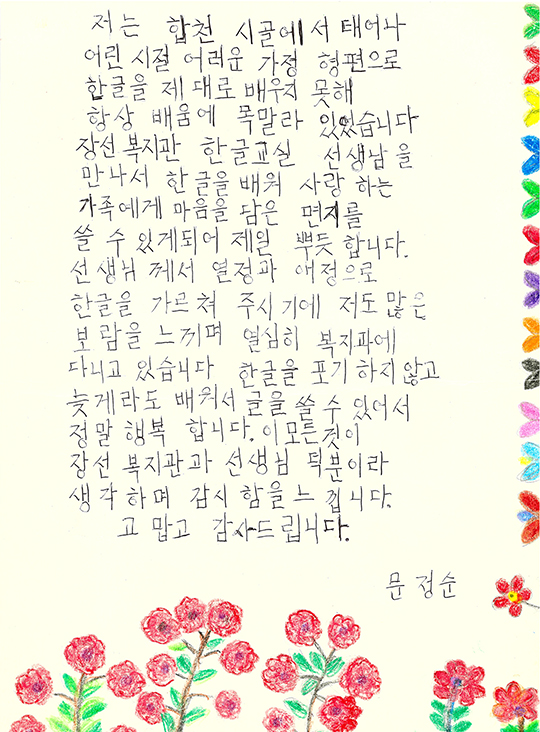 저는 합천 시골에서 태어나
어린 시절 어려운 가정 형편으로
한글을 제대로 배우지 못해
항상 배움에 목말라 있었습니다
장선 복지관 한글교실 선생남을
만나서 한글을 배워 사랑 하는
가족에게 마음을 담은 면지를
쓸 수 있게되어 제일 뿌듯합니다.
선생님께서 열정과 애정으로
한글을 가르쳐 주시기에 저도 많은
보람을 느끼며 열심히 복지과에
다니고 있습니다 한글을 포기하지않고
늦게라도 배워서 글을 쓸 수 있어서
정말 행복 합니다. 이모든것이
장선 복지관과 선생님 덕분이라
생각하며 감시 함을 느낍니다.
고맙고 감사드립니다.
문정순